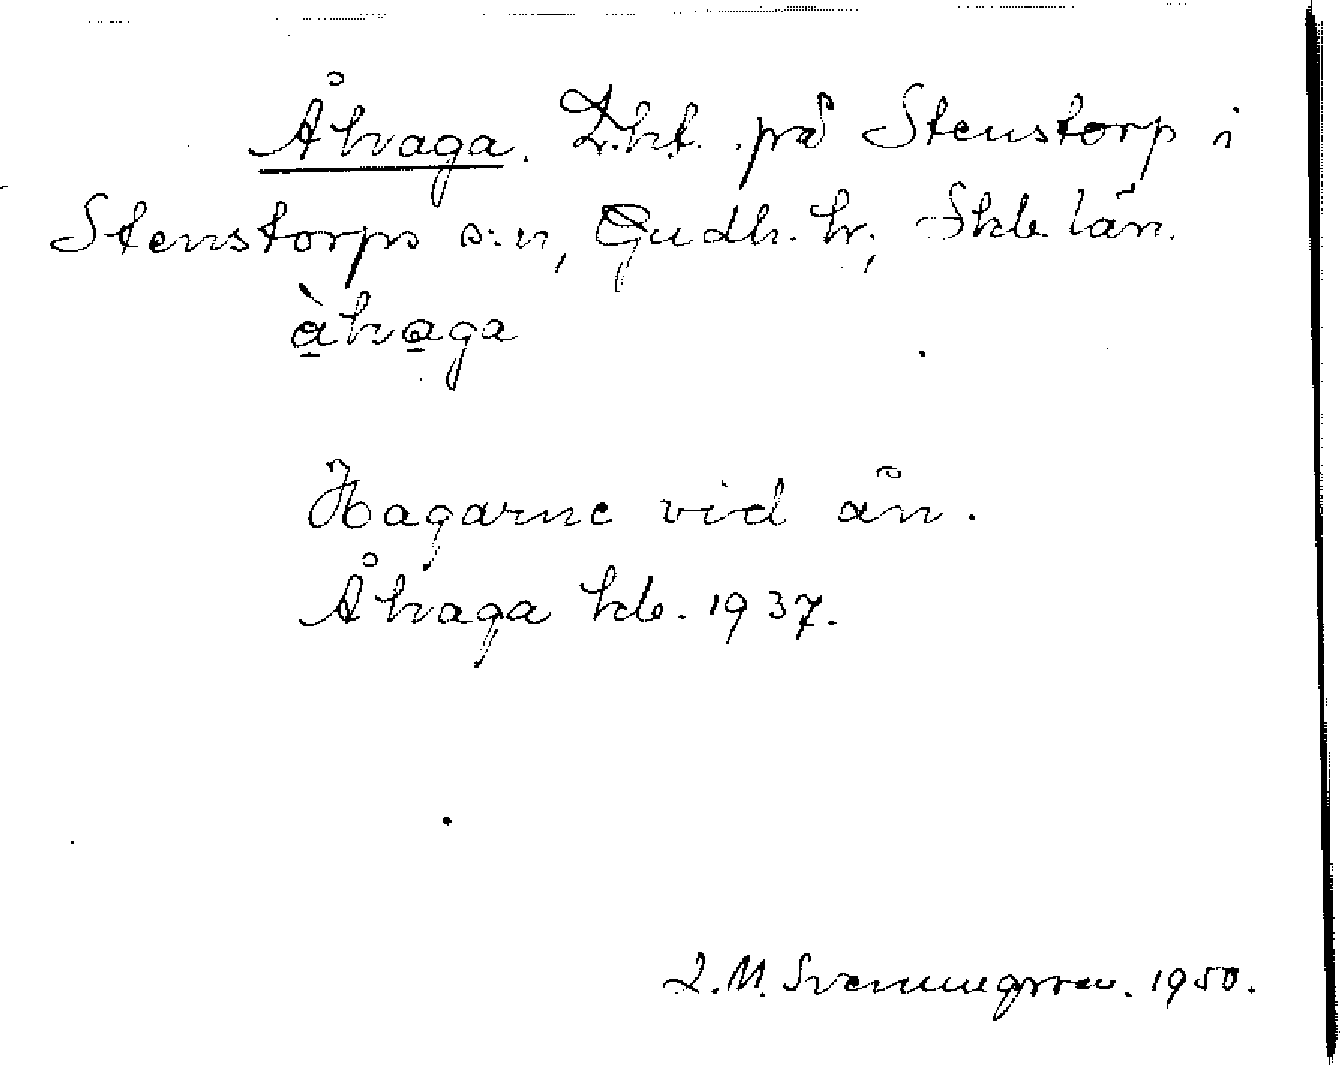 Åhaga. Lht. på Stenstorp i
Stenstorps s:n, Gudh. hr; Skb. län.
åhaga
Hagarne vid ån.
Åhaga hdb. 1937.
L. M. Svenungsson. 1950.